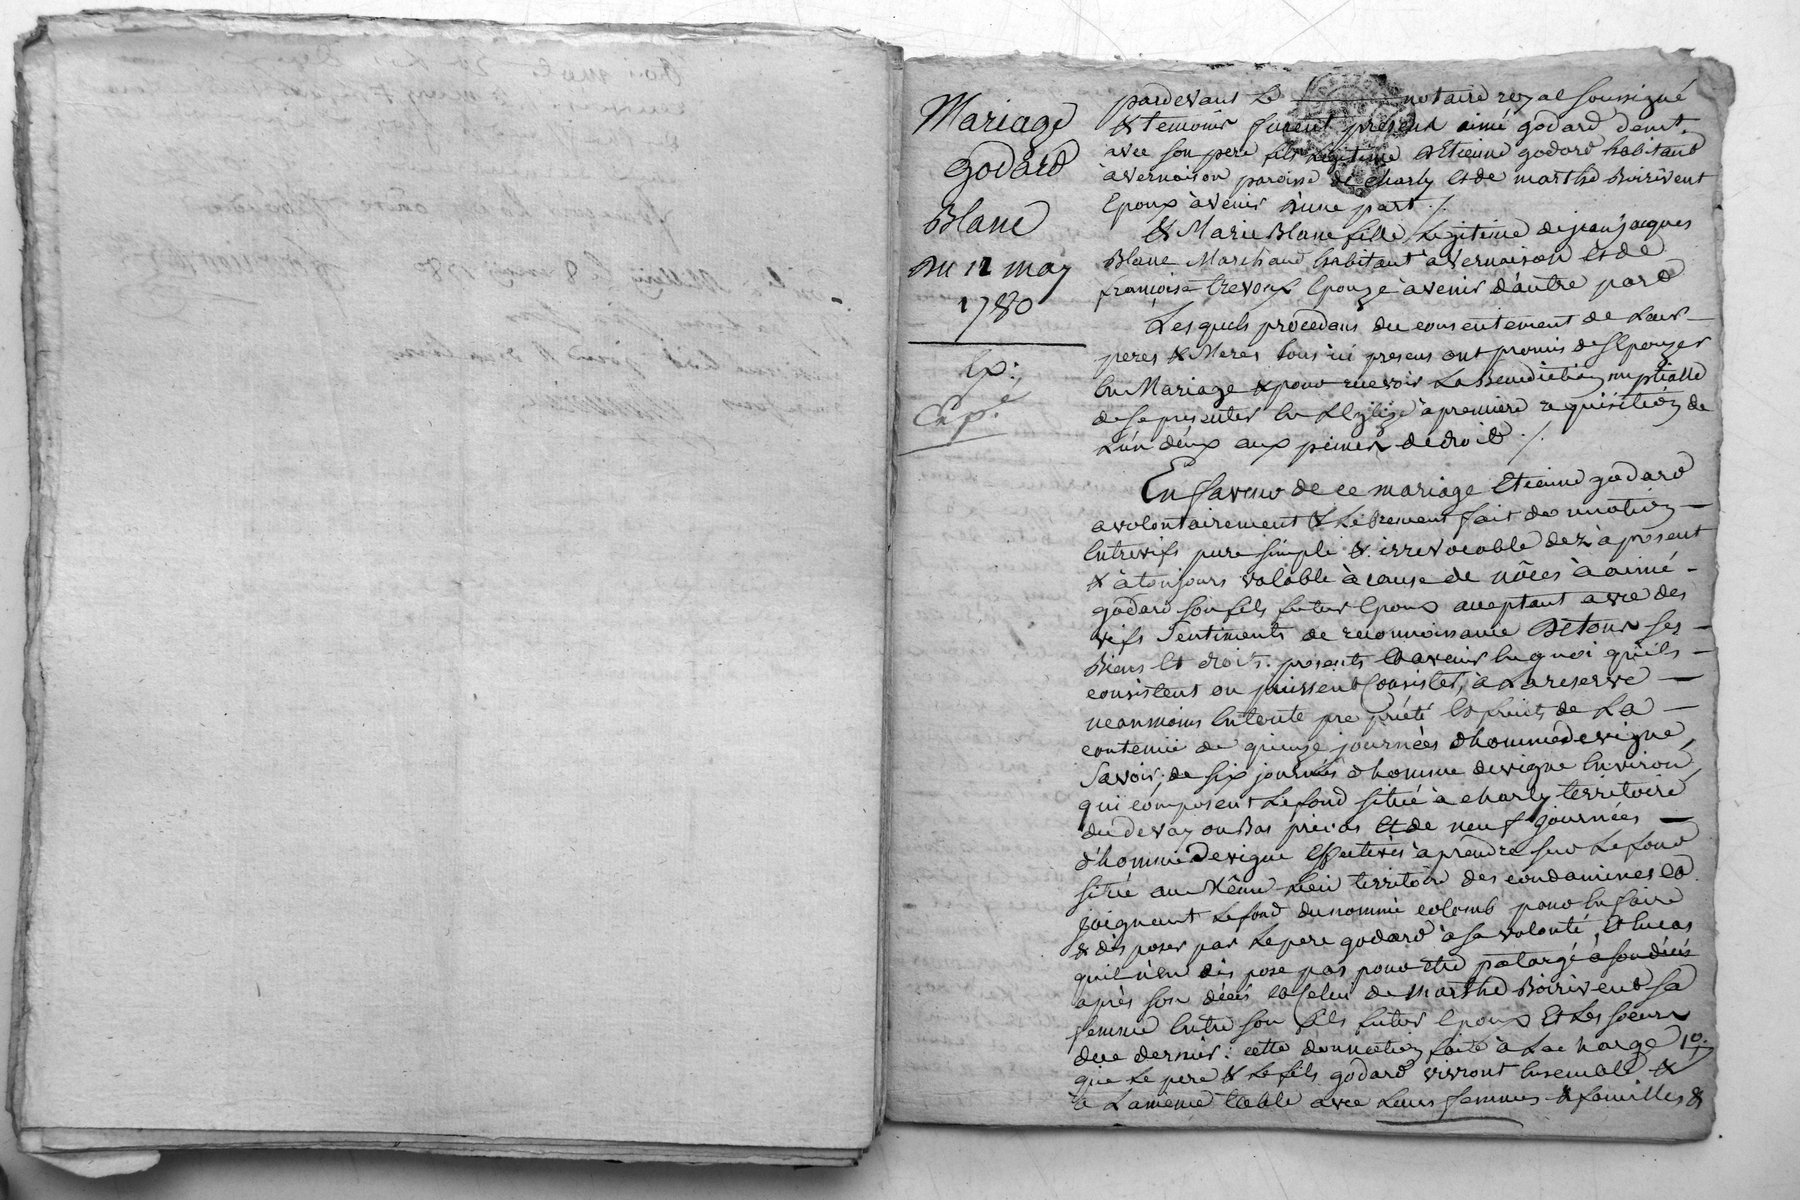 Mariage
godard
Blanc
Du 12 may
1780
Ex:
Exp.é
pardevant Le notaire royal soussigné
& temoins furent presens aimé godard demt.
avec son pere fils legitime D'Etienne godard habitant
à vernaison paroisse de charly et de marthe Boirivent
Epoux à venir d'une part ./.
& Marie Blanc fille Legitime de jean jacques
Blanc Marchand habitant à vernaison et de
françoise trevoux Epouze à venir d'autre pard
Les quels procedans du consentement de Leur
peres & Meres tous ici presens ont promis de s'Epouzer
En Mariage & pour recevoir La Benediction nuptialle
de se presenter En L'Eglize à premiere requisition de
L'un d'eux aux peines de droit ./.
En faveur de ce mariage Etienne godard
a volontairement & Librement fait donnation
Entrevifs pure simple & irrevocable dez à présent
& à toujours valable à cause de nôces à aimé
godard son fils futur Epoux acceptant avec des
vifs sentiments de reconnoissance De tous ses
Biens et droits presents & avenir En quoi qu'ils
consistent ou puissent Consister, à La reserve
neanmoins En toute propriété & fruits de La
contenue de quinze journées d'homme de vigne,
Savoir; de six journées d'homme de vigne Environ
qui composent Le fond situé à charly territoire
du devay ou Bas privas et de neuf journées
d'homme de vigne Effectives à prendre sur Le fond
situé au Même Lieu territoire des condamines &
joignant Le fond du nommé colomb pour En faire
& disposer par Le pere godard à sa volonté, Et En cas
qu'il n'en dispose pas pour Etre partagé à son décès
après son décès & Celui de Marthe Boirivend sa
femme Entre son fils futur Epoux Et Les soeurs
de ce dernier: cette donnation faite à La charge 1o.
que Le pere & Le fils godard vivront Ensemble &
à La même table avec Leurs femmes & familles &